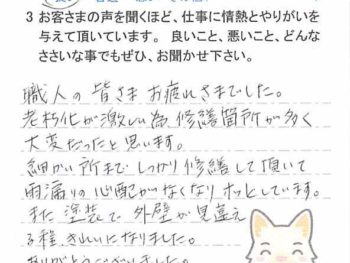 3 お客さまの声を聞くほど、仕事に情熱とやりがいを
与えて頂いています。 良いこと、悪いこと、どんな
ささいな事でもぜひ、お聞かせ下さい。
職人の皆さま お疲れさまでした。
老朽化が激しい為 修繕箇所が多く
大変だったと思います。
細かい所まで しっかり修繕して頂いて
雨漏りの心配がなくなり ホッとしています。
また 塗装で 外壁が 見違え
る程 きれいになりました。
ありがとうございました。